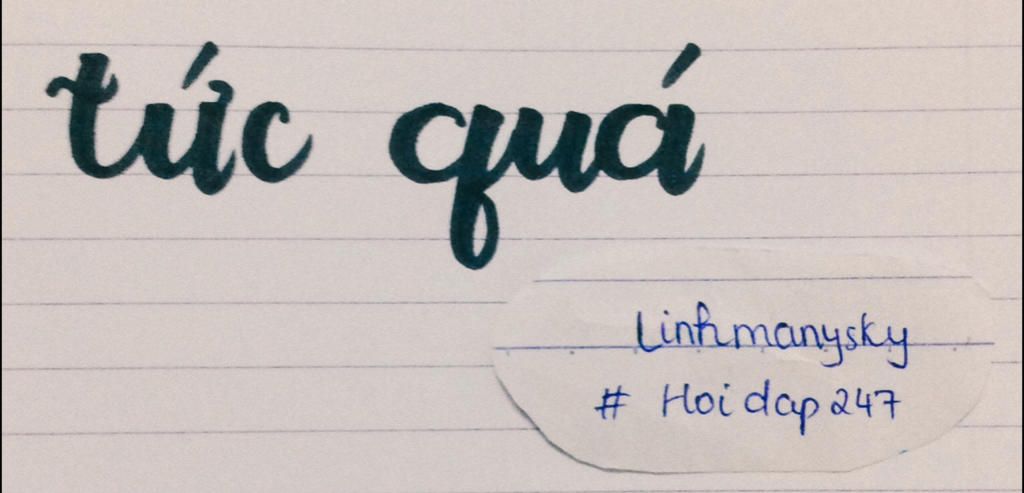 tức quá
Linhmanysky
# Hoidap247